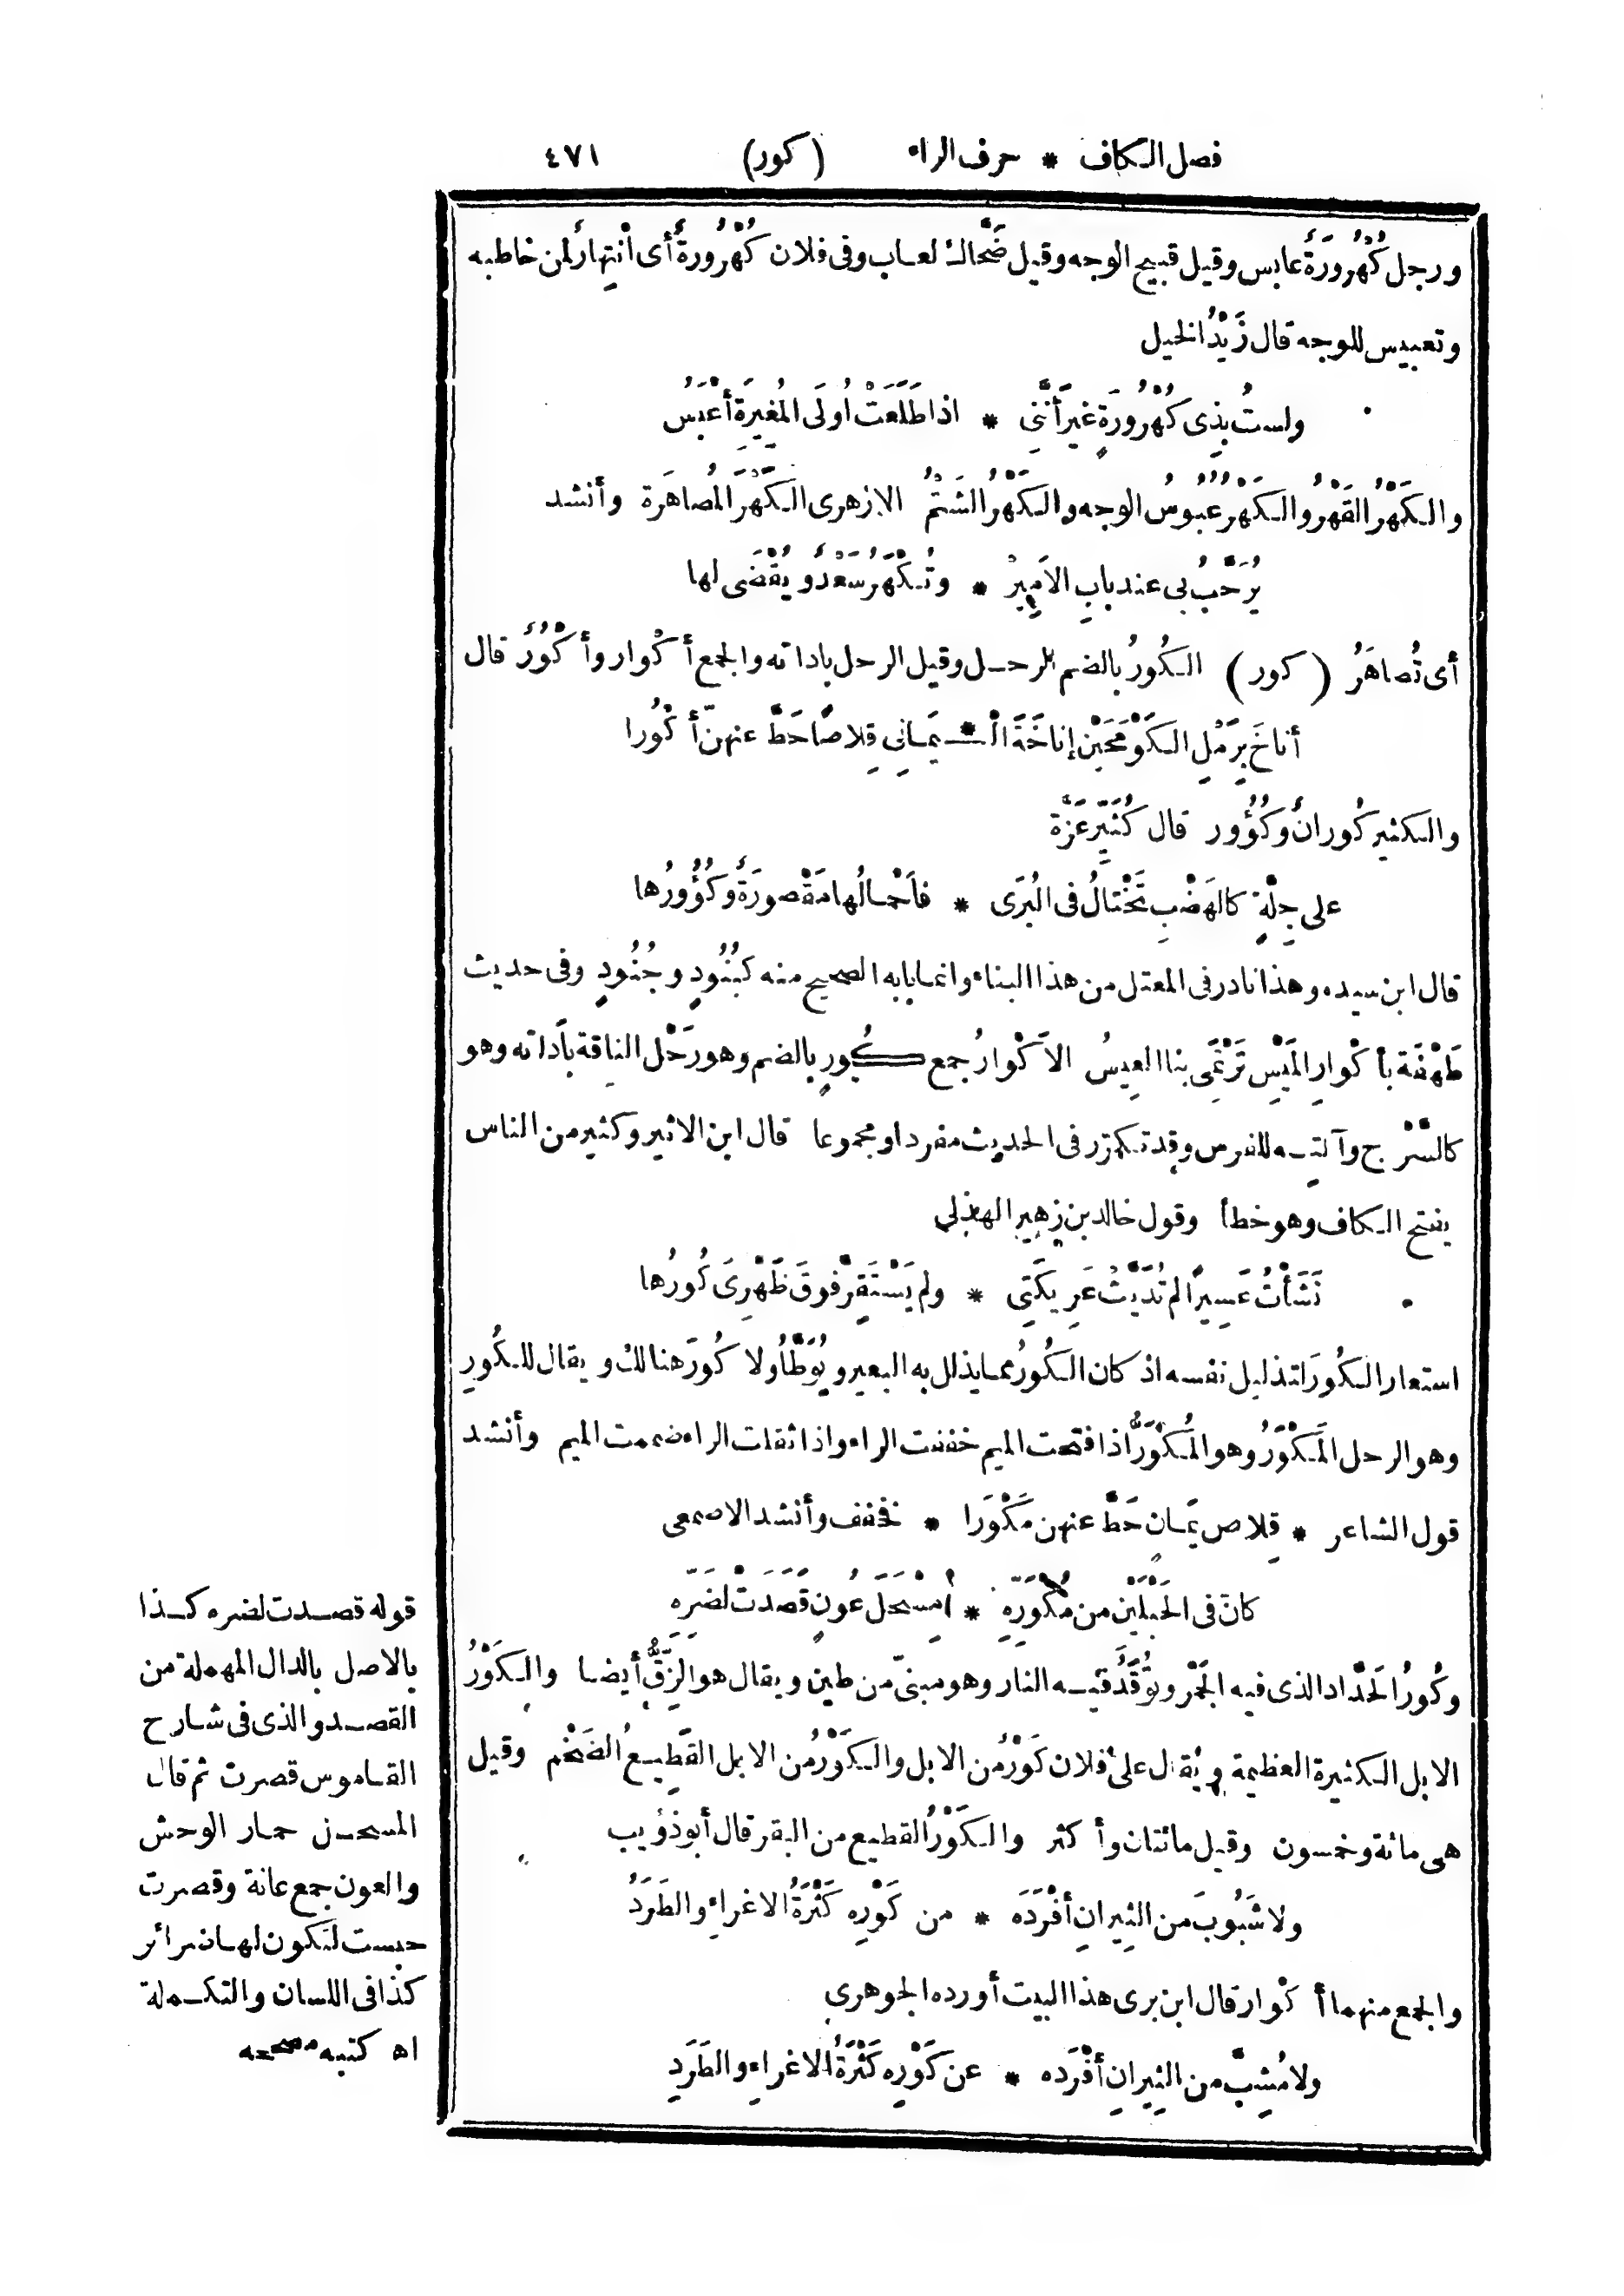 فصل الكاف * حرف الراء (كور) ٤٧١
ورجل كُهْرُورَةٌ عابس وقيل قبيح الوجه وقيل ضَحَّاك لعاب وفى فلان كُهْرُورةٌ أى انْتِهارٌ لمن خاطبه
وتعبيس للوجه قال زَيْدُ الخيل
ولستُ بِذِى كُهْرُورَةٍ غيرَ أَنَّنِى * اذا طَلَعَتْ أُولَى المُغِيَرةِ أَعْبَسُ
والكَهْرُ القَهْرُ والكَهْرُ عُبُوسُ الوجه والكَهْرُ الشَتْمُ الازهرى الكَهْرُ المُصاهَرة وأنشد
يُرَحَّبُ بى عند بابِ الاَمِيِرْ * وتُكْهَرُ سَعْدٌ ويُقْضَى لها
أى تُصاهَرُ (كور) الكُورُ بالضم الرحل وقيل الرحل باداته والجمع أكْوار وأكْوُرٌ قال
أناخَ بِرَمْلِ الكَوْمَحَيْنِ إناخَةَ الْ * يَمانِى قِلاصًا حَطَّ عنهنّ أكْوُرا
والكثير كُورانٌ وكُؤُور قال كُثَيِّرُ عَزَّة
على جِلَّةٍ كالهَضْبِ تَخْتالُ فى البُرَى * فاَحْمالُها مَقْصورَةٌ وكُؤُورُها
قال ابن سيده وهذا نادر فى المعتل من هذا البناء وانما بابه الصحيح منه كبُنُودٍ وجُنُودٍ وفى حديث
طَهْفَة بأكْوارِ المَيْسِ تَرْتَمِى بنا العِيسُ الاَكْوارُ جمع كُورٍ بالضم وهو رَحْل الناقة بأَداته وهو
كالسَّرْج وآلتِه للفرس وقد تكرّر فى الحديث مفردا ومجموعا قال ابن الاثير وكثير من الناس
يفتح الكاف وهو خطأ وقول خالد بن زهير الهذلى
نَشَأْتُ عَسِيرًا لم تُدَيَّثْ عَرِيكَتِى * ولم يَسْتَقِرَّ فوقَ ظَهْرِىَ كُورُها
استعار الكُورَ لتذليل نفسه اذ كان الكُورُ مما يذلل به البعير ويُوَطَّأُ ولا كُورَ هنالك ويقال للكُورِ
وهو الرحل المَكْوَرُ وهو المُكْوَرُّ اذا فتحت الميم خففت الراء واذا ثقلت الراء ضممت الميم وأنشد
قول الشاعر * قِلاص يَمان حَطَّ عنهن مَكْوَرَا * فخفف وأنشد الاصمعى
كانَ فى الحَبْلَيْنِ من مُكْوَرِّهِ * مِسْحَل عُونٍ قَصَدَتْ لضَرّهِ
وكُورُ الحَدَّاد الذى فيه الجَمْر وتُوقَدُ فيه النار وهو مبنىّ من طين ويقال هو الزِّقُّ أيضا والكَوْرُ
الابل الكثيرة العظيمة ويُقال على فلان كَوْرٌ من الابل والكَوْرُ من الابل القَطِيعُ الضَخْم وقيل
هى مائة وخمسون وقيل مائتان وأكثر والكَوْرُ القطيع من البقر قال أبو ذؤيب
ولا شَبُوبَ من الثِيرانِ أفْرَدَه * من كَوْرِه كَثْرَةُ الاغراءِ والطَرَدُ
والجمع منهما أكْوار قال ابن برى هذا البيت أورده الجوهرى
ولا مُشِبَّ من الثِيرانِ أفْرَده * عن كَوْرِه كَثْرَةُ الاغراءِ والطَرَدِ
قوله قصدت لضره كذا
بالاصل بالدال المهملة من
القصد والذى فى شارح
القاموس قصرت ثم قال
المسحل حمار الوحش
والعون جمع عانة وقصرت
حبست لتكون لها ضرائر
كذا فى اللسان والتكملة
اه كتبه مصححه